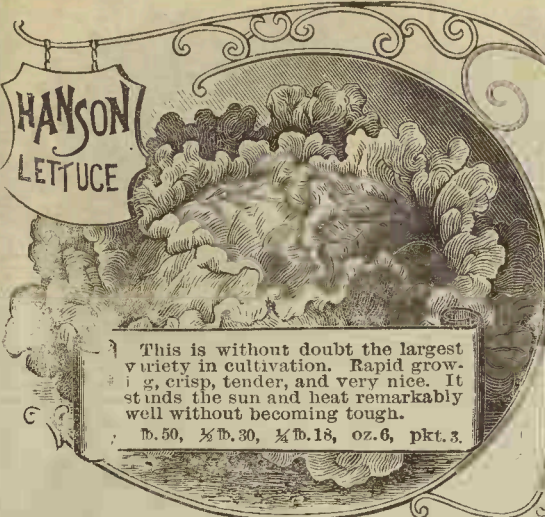 HANSON
LETTUCE
This is without doubt the largest
variety in cultivation. Rapid grow-
i g, crisp, tender, and very nice. It
stands the sun and heat remarkably
well without becoming tough.
℔.50, ½℔.30, ¼℔.18, oz.6, pkt.3.